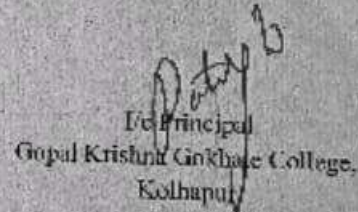 I/c Principal
Gopal Krishna Gokhale College,
Kolhapur